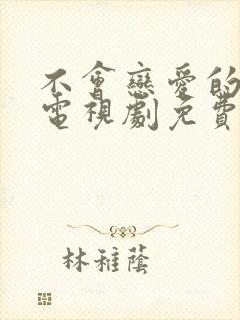 不會戀愛的
電視劇免費
林稚蔭